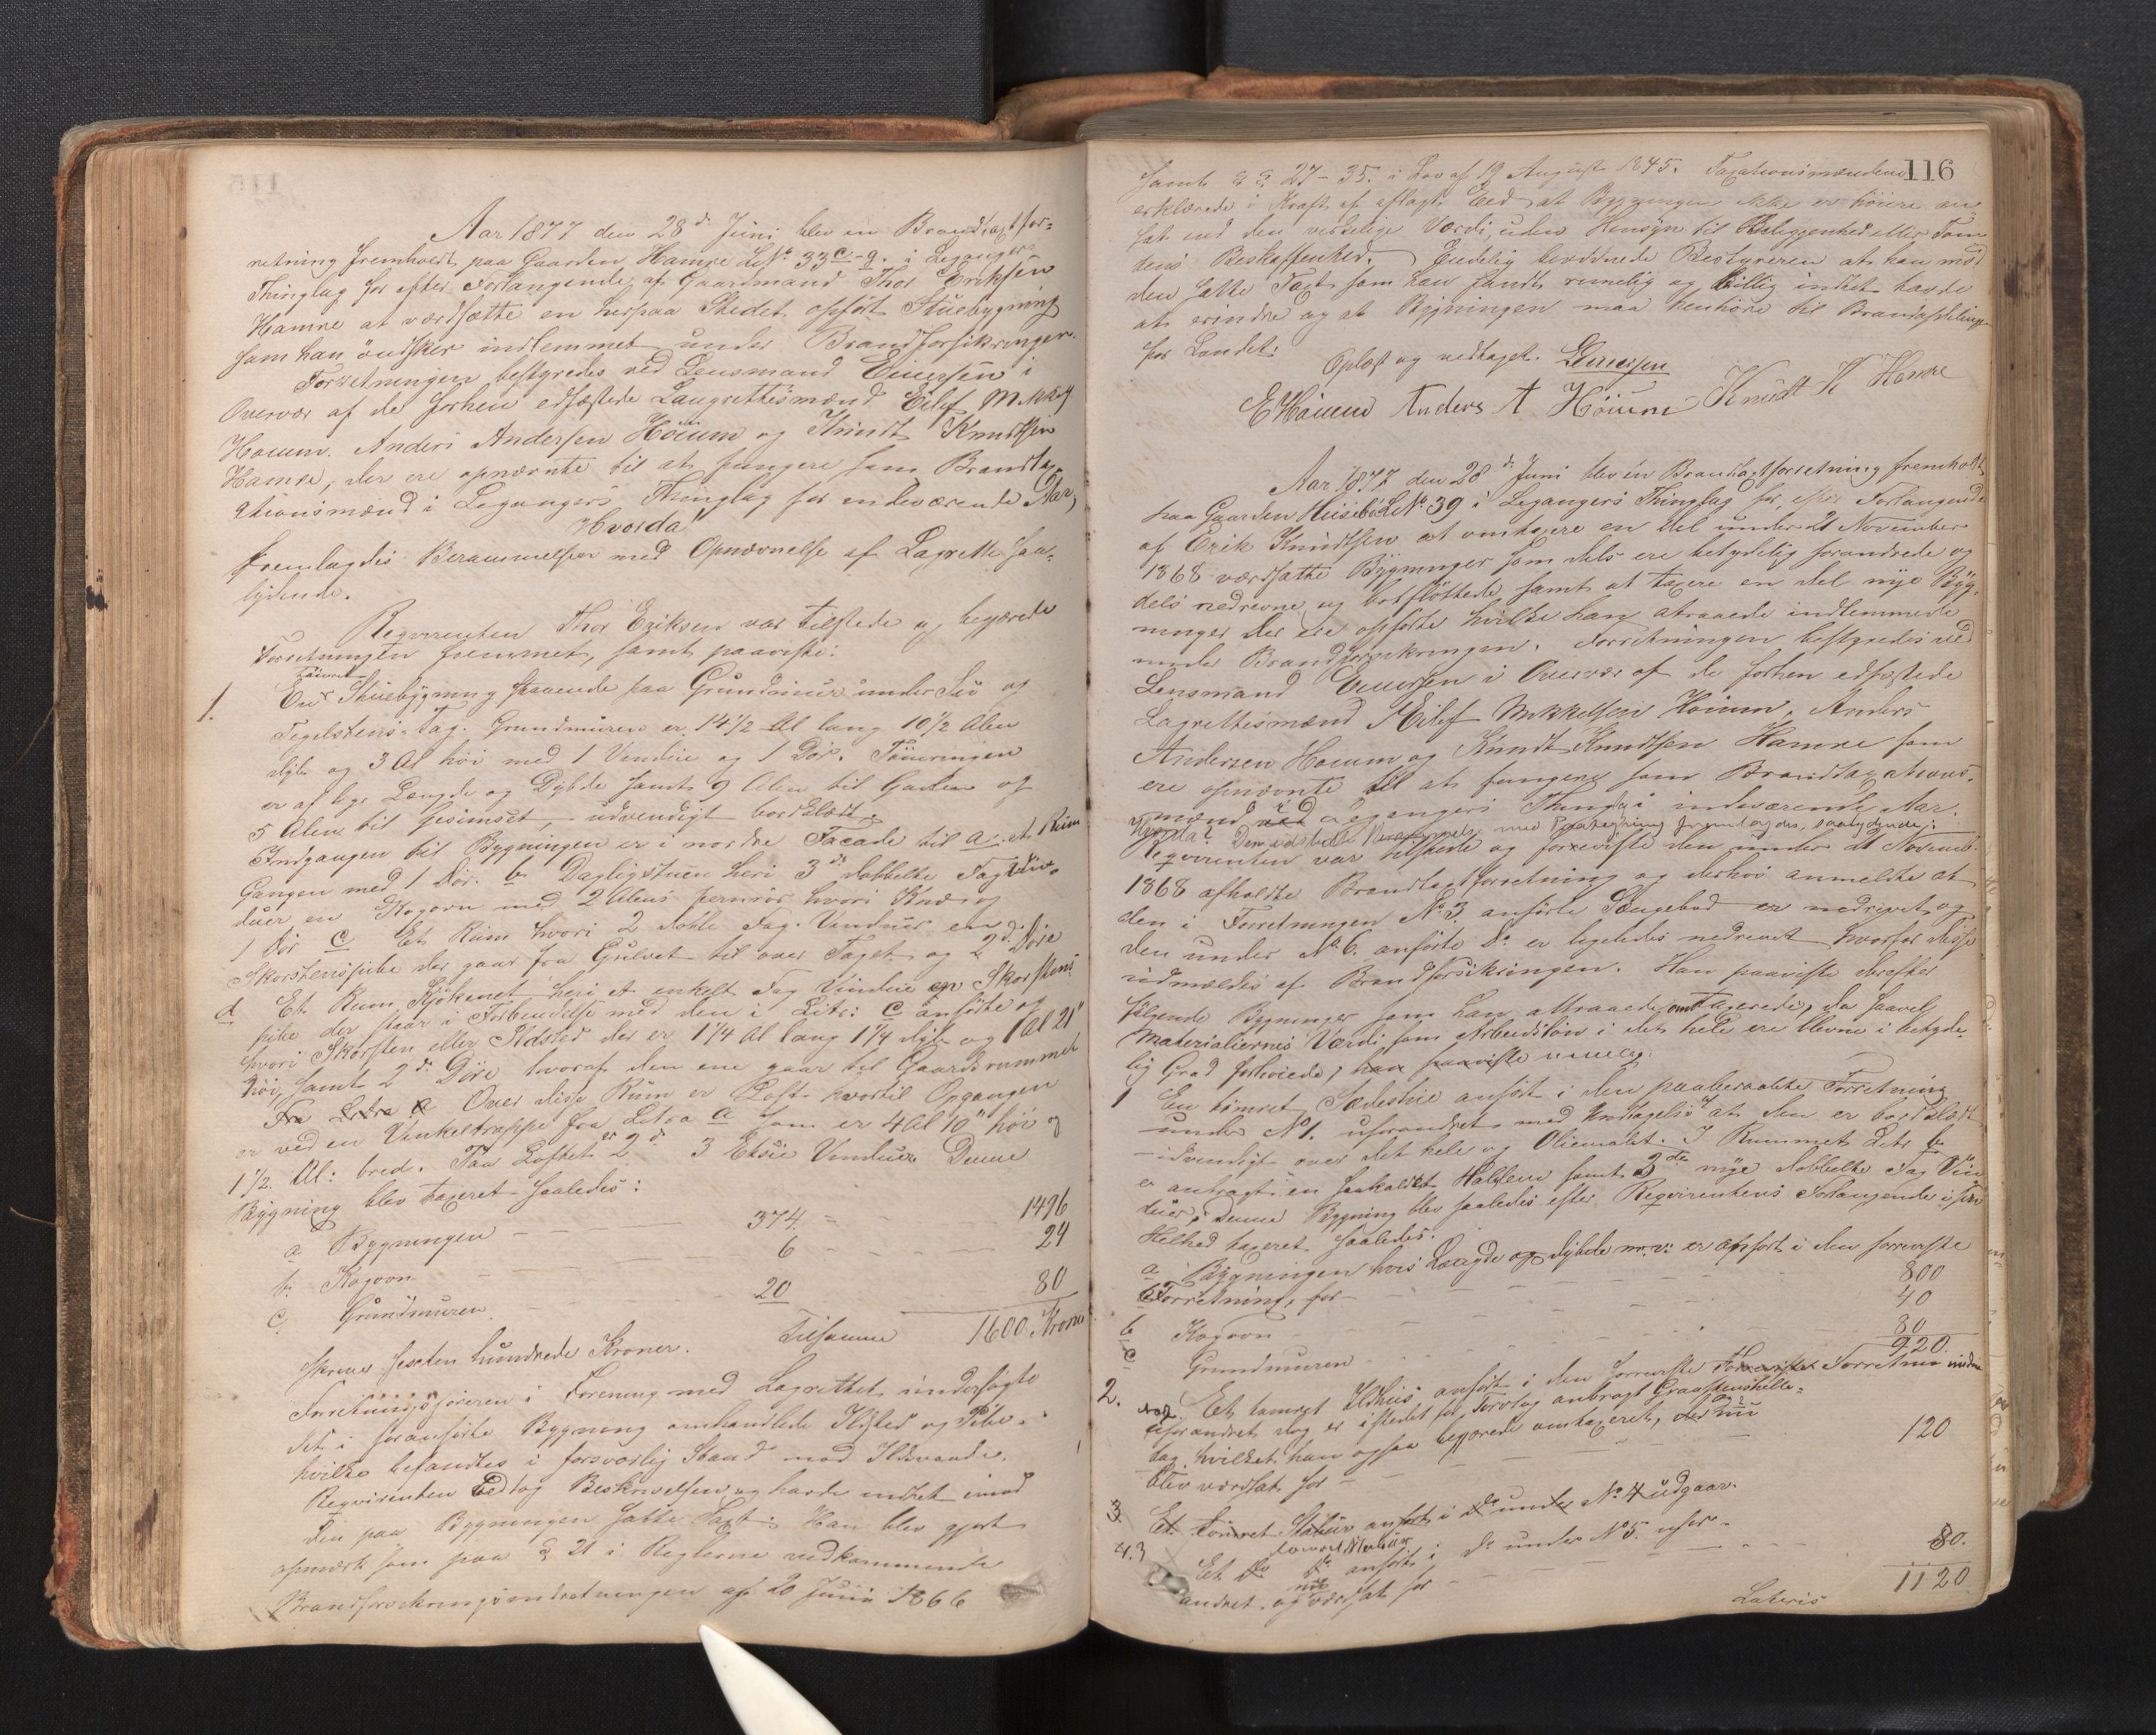 Aar 1877 den 28de Juni blev en Brandtaxtfor=
retning fremholdt paa Gaarden Hamre LNo 33 c-g. i Leganger
Thinglag for efter Forlangende af Gaardmand Thor Eriksen
Hamre at værdsætte en herpaa Stedet opført Stuebygning
som han øndsker indlemmet under Brandforsikringen.
Forretningen bestyredes ved Lensmand Einersen i
Overvær af de forhen edfæstede Laugrettesmænd Eilef Mikkels
Høium. Anders Andersen Høium og Knudt Knudtsen
Hamre, der ere opnævnte til at fungere som Brandta=
xtionsmænd i Legangers Thinglag for indeværende Aar;
Hvorda!
Fremlagdes Berammelsen med Opnævnelse af Lagrette saa=
lydende.
Reqvirenten Thor Eriksen var tilstede og begjærede
Forretningen fremmet, samt paaviste:
1. En tømret Stuebygning staaende paa Grundmuur under Suv og
Tegelstens-Tag. Grundmuren er 14 1/2 Al lang 10 1/2 Alen
dyb og 3 Al høi med 1 Vindue og 1 Dør. Tømringen
er af lige Længde og Dybde samt 9 Alen til Gavlen og
5 Alen til Gesimset, udvendigt bordklædt.
Indgangen til Bygningen er i nordre Facade til a. et Rum
Gangen med 1 Dør. b. Dagligstuen heri 3de dobbelte Fag Vin=
duer en Kogovn med 2 Alens jernrør hvori Knæ og
1 Dør c Et Rum hvori 2 dobbelte Fag Vinduer en
Skorstenspibe der gaar fra Gulvet til over Taget og 2de Døre
d Et Rum Kjøkenet heri et enkelt Fag Vindue en Skorstens
pibe der staar i Forbindelse med den i Litr: c anførte og
hvori Skorsten eller Ildsted der er 1 1/4 Al lang 1 1/4 dyb og 1 Al 21"
høi, samt 2de Døre hvoraf den ene gaar til Gaardsrummet
Fra Litra a Over disse Rum er Loft hvortil Opgangen
er ved en Vinkeltrappe fra Litra a som er 4 Al 10" høi og
1 1/2 Al: bred. Paa Loftet er 2de 3 Vinduer Denne
Bygning blev taxeret saaledes:
a Bygningen 374. 1496
b. Kogovn 6 24
c. Grundmuren 20 80
Tilsamme 1600 Kroner
skriver sexten hundrede Kroner.
Forretningsføreren i Forening med Lagrettet undersøgte
det i foranførte Bygning omhandlede Ildsted og Pibe
hvilke befandtes i forsvarlig Stand mod Ildsvaade.
Reqvirenten vedtog Beskrivelsen og havde indtet imod
den paa Bygningen satte Taxt. Han blev gjort
opmærksom paa § 21 i Reglerne vedkommende
Brandforsikringsindretningen af 20 Juni 1866
116
samt §§ 27-35. i Lov af 19 August 1845. Taxationsmændene
erklærede i Kraft af aflagt Eed at Bygningen ikke er høiere an
sat end den virkelige Værdi, uden Hensyn til Beliggenhed eller Tom
tens Beskaffenhed. Endelig bevidnede Bestyreren at han mod
den satte Taxt som han fandt rimelig og billig indtet havde
at erindre og at Bygningen maa henhøre til Brandafdelingen
for Landet.
Oplæst og vedtaget. Einersen
E Høium Anders A Høium Knudt K Hamre
Aar 1877 den 28de Juni blev en Brandtaxtforretning fremholdt
paa Gaarden Huseba LNo 39 i Legangers Thinglag for, efter Forlangende
af Erik Knudtsen at omtaxere en del under 21 November
1868 værdsatte Bygninger som dels ere betydelig forandrede og
dels nedrevne og bortflöttede, samt at taxere en del nye Byg
ninger der ere opførte hvilke han atraaede indlemmede
under Brandforsikringen. Forretningen bestyredes ved
Lensmand Einersen i Overvær af de forhen edfæstede
Lagrettesmænd Eilef Mikkelsen Høium, Anders
Andersen Høium og Knudt Knudtsen Hamre som
ere opnævnte til at fungere som Brandtaxations=
mænd ved i Legangers Thingl. i indeværende Aar.
Hvorda! Den udstedte Berammelse med Paategning fremlagdes, saalydende:
Reqvirenten var tilstede og foreviste den under 21 Novemb.
1868 afholdte Brandtaxtforretning og derhos anmeldte at
den i Forretningen No 3 anførte Sængebod er nedrevet og
den under No 6. anførte Do er ligeledes nedrevet hvorfor disse
udmældes af Brandforsikringen. Han paaviste derefter
følgende Bygninger som han attraaede omtaxerede, da saavel
Materialiernes Værdi som Arbeidsløn i det hele ere blevne i betyde=
lig Grad forhøiede, han paaviste
1 En tømret Sædestue anført i den paaberaabte Forretning
under No 1. uforandret med Undtagelse af at den er bordklædt
udvendigt over det hele og Oliemalet. I Rummet Litr b
er anbragt en saakaldt Halvovn samt 3de nye dobbelte Fag Vin
duer. Denne Bygning blev saaledes efter Reqvirentens Forlangende i sin
Helhed taxeret saaledes.
a Bygningen hvis Længde og dybde m.v. er anført i den foreviste
Forretning, for 800
b Kogovn 40
c Grundmuren 80
920.
2. Et tømret Ildhus anført i den foreviste Foreviste Forretning under
uforandret dog er istedet for Torvtag anbragt Graastenshelle=
tag hvilket han ogsaa begjærede omtaxeret, der nu
blev værdsat for 120
3 Et Tømret Stabur anført i do under No 4 udgaar.
4.3 Et do do tømret Stabur anført i do under No 5. ufor=
andret og nu værdsat for 80.
Lateris 1120